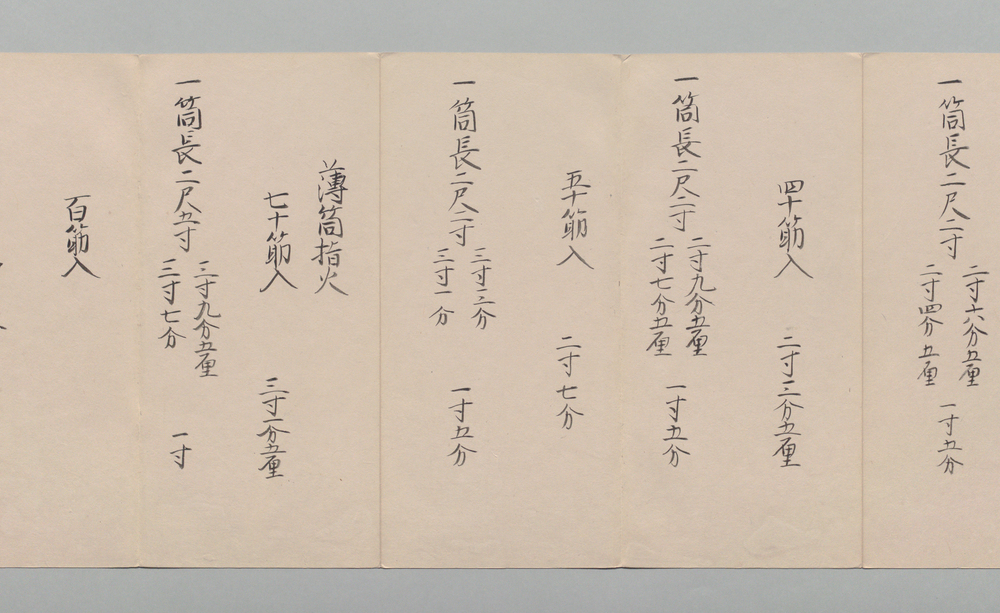 一筒長二尺二寸
二寸六分五厘
二寸四分五厘
一寸五分
四十筋入
二寸三分五厘
一筒長二尺二寸
二寸九分五厘
二寸七分五厘
一寸五分
五十筋入
二寸七分
一筒長二尺二寸
三寸三分
三寸一分
一寸五分
薄筒指火
七十筋入
三寸一分五厘
一筒長二尺五寸
三寸九分五厘
三寸七分
一寸
百筋入